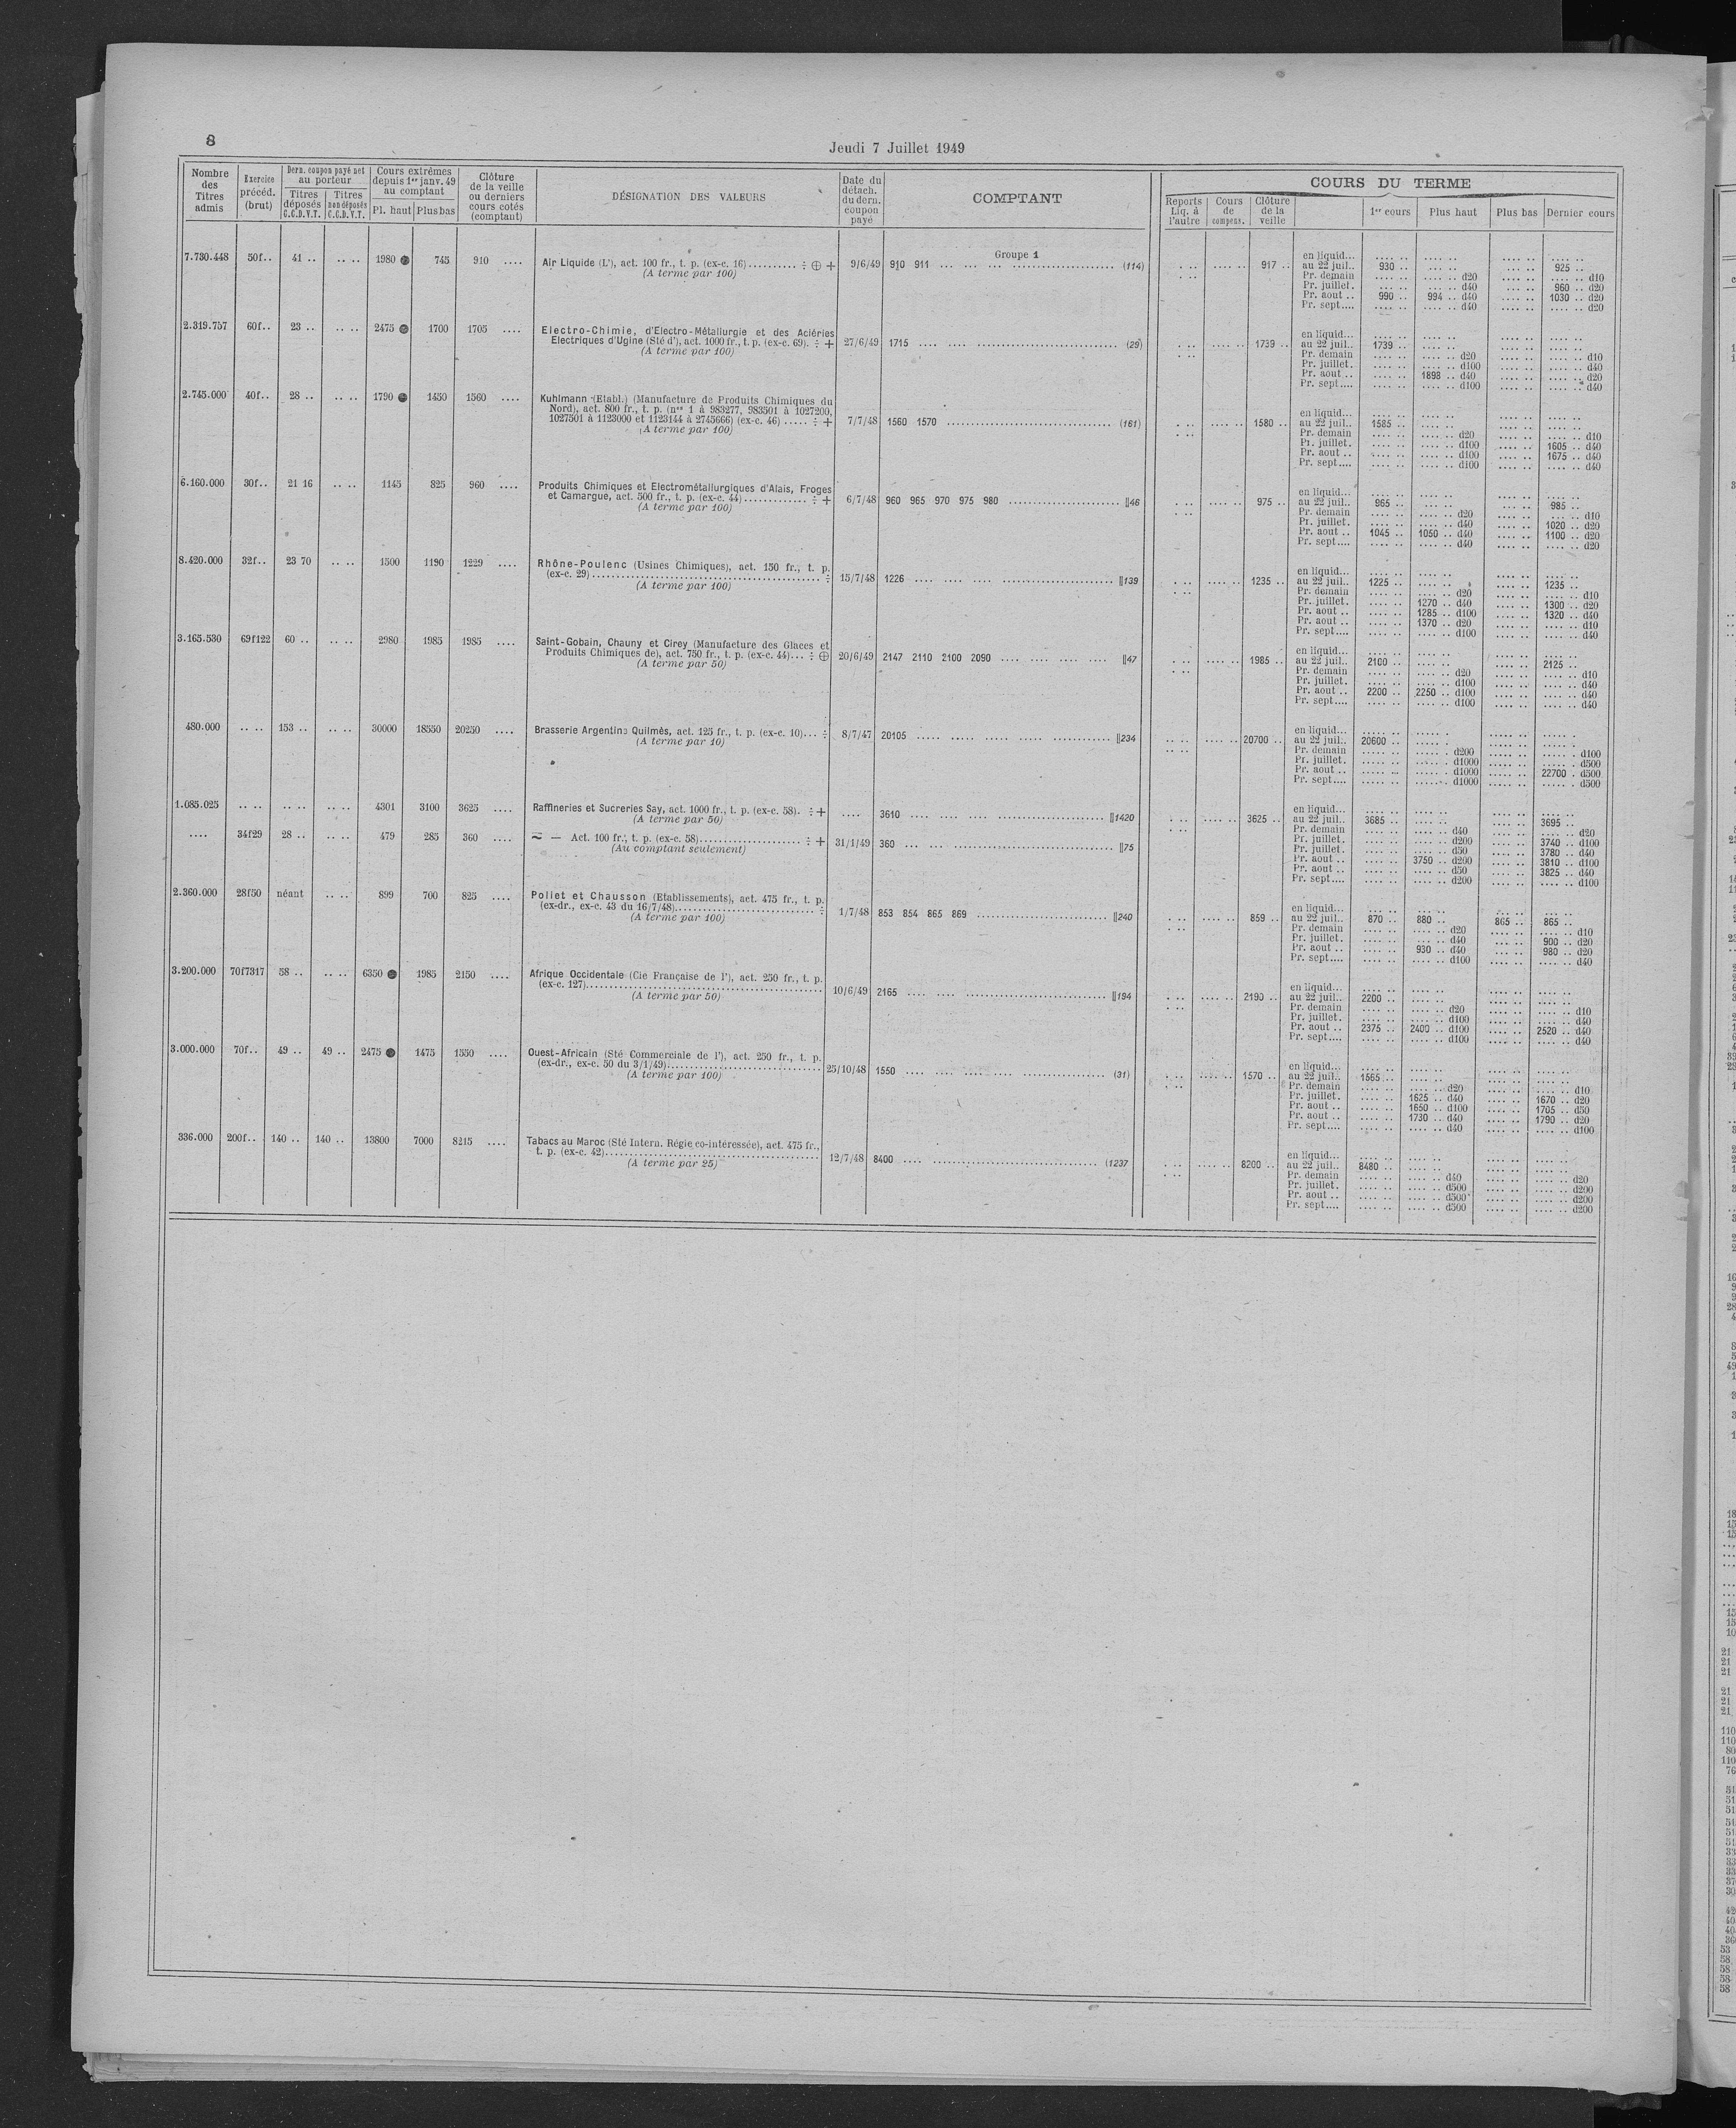 8
Jeudi 7 Juillet 1949
Nombre des Titres admis
Exercice précéd. (brut)
Dern. coupon payé net au porteur
Titres déposés C.C.D.V.T.
Titres non déposés C.C.D.V.T.
Cours extrêmes depuis 1er janv. 49 au comptant
Pl. haut
Plus bas
Clôture de la veille ou derniers cours cotés (comptant)
DÉSIGNATION DES VALEURS
Date du détach. du dern. coupon payé
COMPTANT
COURS DU TERME
Reports Liq. à l'autre
Cours de compens.
Clôture de la veille
1er cours
Plus haut
Plus bas
Dernier cours
Groupe 1
7.730.448 50f.. 41 .. .. .. 1980 745 910 .... Air Liquide (L'), act. 100 fr., t. p. (ex-c. 16) .......... ÷ ⊕ + 9/6/49 910 911 ... (114) 917 ..
(A terme par 100)
en liquid...
au 22 juil.. 930 .. 925 ..
Pr. demain d20 d10
Pr. juillet. d40 960 .. d20
Pr. aout .. 990 .. 994 .. d40 1030 .. d20
Pr. sept.... d40 d20
2.319.757 60f.. 23 .. .. .. 2475 1700 1705 .... Electro-Chimie, d'Electro-Métallurgie et des Aciéries
Electriques d'Ugine (Sté d'), act. 1000 fr., t. p. (ex-c. 69). ÷ + 27/6/49 1715 .... (29) 1739 ..
(A terme par 100)
en liquid...
au 22 juil.. 1739 ..
Pr. demain d20 d10
Pr. juillet. d100 d40
Pr. aout .. 1898 .. d40 d20
Pr. sept.... d100 d40
2.745.000 40f.. 28 .. .. .. 1790 1450 1560 .... Kuhlmann (Etabl.) (Manufacture de Produits Chimiques du
Nord), act. 800 fr., t. p. (nos 1 à 983277, 983501 à 1027200,
1027501 à 1123000 et 1123144 à 2745666) (ex-c. 46) ..... ÷ + 7/7/48 1560 1570 .... (161) 1580 ..
(A terme par 100)
en liquid...
au 22 juil.. 1585 ..
Pr. demain d20 d10
Pr. juillet. d100 1605 .. d40
Pr. aout .. d100 1675 .. d40
Pr. sept.... d100 d40
6.160.000 30f.. 21 16 .. .. 1145 825 960 .... Produits Chimiques et Electrométallurgiques d'Alais, Froges
et Camargue, act. 500 fr., t. p. (ex-c. 44)............. ÷ + 6/7/48 960 965 970 975 980 .... ||46 975 ..
(A terme par 100)
en liquid...
au 22 juil.. 965 .. 985 ..
Pr. demain d20 d10
Pr. juillet. d40 1020 .. d20
Pr. aout .. 1045 .. 1050 .. d40 1100 .. d20
Pr. sept.... d40 d20
8.420.000 32f.. 23 70 .. .. 1500 1190 1229 .... Rhône-Poulenc (Usines Chimiques), act. 150 fr., t. p.
(ex-c. 29).................... ÷ 15/7/48 1226 .... ||139 1235 ..
(A terme par 100)
en liquid...
au 22 juil.. 1225 .. 1235 ..
Pr. demain d20 d10
Pr. juillet. 1270 .. d40 1300 .. d20
Pr. aout .. 1285 .. d100 1320 .. d40
Pr. aout .. 1370 .. d20 d10
Pr. sept.... d100 d40
3.165.530 69f122 60 .. .. .. 2980 1985 1985 .... Saint-Gobain, Chauny et Cirey (Manufacture des Glaces et
Produits Chimiques de), act. 750 fr., t. p. (ex-c. 44)... ÷ ⊕ 20/6/49 2147 2110 2100 2090 .... ||47 1985 ..
(A terme par 50)
en liquid...
au 22 juil.. 2100 .. 2125 ..
Pr. demain d20 d10
Pr. juillet. d100 d40
Pr. aout .. 2200 .. 2250 .. d100 d40
Pr. sept.... d100 d40
480.000 .. .. 153 .. .. .. 30000 18550 20250 .... Brasserie Argentine Quilmès, act. 125 fr., t. p. (ex-c. 10)... ÷ 8/7/47 20105 ..... ||234 20700 ..
(A terme par 10)
en liquid...
au 22 juil.. 20600 ..
Pr. demain d200 d100
Pr. juillet. d1000 d500
Pr. aout .. d1000 22700 . d500
Pr. sept.... d1000 d500
1.085.025 .. .. .. .. .. .. 4301 3100 3625 .... Raffineries et Sucreries Say, act. 1000 fr., t. p. (ex-c. 58). ÷ + .... 3610 .... ||1420 3625 ..
(A terme par 50)
.... 34f29 28 .. .. .. 479 285 360 .... — Act. 100 fr., t. p. (ex-c. 58).................... ÷ + 31/1/49 360 ... ||75
(Au comptant seulement)
en liquid...
au 22 juil.. 3685 .. 3695 ..
Pr. demain d40 d20
Pr. juillet. d200 3740 .. d100
Pr. juillet. d50 3780 .. d40
Pr. aout .. 3750 .. d200 3810 .. d100
Pr. aout .. d50 3825 .. d40
Pr. sept.... d200 d100
2.360.000 28f50 néant .. .. 899 700 825 .... Poliet et Chausson (Etablissements), act. 475 fr., t. p.
(ex-dr., ex-c. 43 du 16/7/48).................... ÷ 1/7/48 853 854 865 869 .... ||240 859 ..
(A terme par 100)
en liquid...
au 22 juil.. 870 .. 880 .. 865 .. 865 ..
Pr. demain d20 d10
Pr. juillet. d40 900 .. d20
Pr. aout .. 930 .. d40 980 .. d20
Pr. sept.... d100 d40
3.200.000 70f7317 58 .. .. .. 6350 1985 2150 .... Afrique Occidentale (Cie Française de l'), act. 250 fr., t. p.
(ex-c. 127).................... 10/6/49 2165 .... ||194 2190 ..
(A terme par 50)
en liquid...
au 22 juil.. 2200 ..
Pr. demain d20 d10
Pr. juillet. d100 d40
Pr. aout .. 2375 .. 2400 .. d100 2520 .. d40
Pr. sept.... d100 d40
3.000.000 70f.. 49 .. 49 .. 2475 1475 1550 .... Ouest-Africain (Sté Commerciale de l'), act. 250 fr., t. p.
(ex-dr., ex-c. 50 du 3/1/49).................... 25/10/48 1550 .... (31) 1570 ..
(A terme par 100)
en liquid...
au 22 juil.. 1565 ..
Pr. demain d20 d10
Pr. juillet. 1625 .. d40 1670 .. d20
Pr. aout .. 1650 .. d100 1705 .. d50
Pr. aout .. 1730 .. d40 1790 .. d20
Pr. sept.... d40 d100
336.000 200f.. 140 .. 140 .. 13800 7000 8215 .... Tabacs au Maroc (Sté Intern. Régie co-intéressée), act. 475 fr.,
t. p. (ex-c. 42).................... 12/7/48 8400 .... (1237 8200 ..
(A terme par 25)
en liquid...
au 22 juil.. 8480 ..
Pr. demain d40 d20
Pr. juillet. d500 d200
Pr. aout .. d500 d200
Pr. sept.... d500 d200